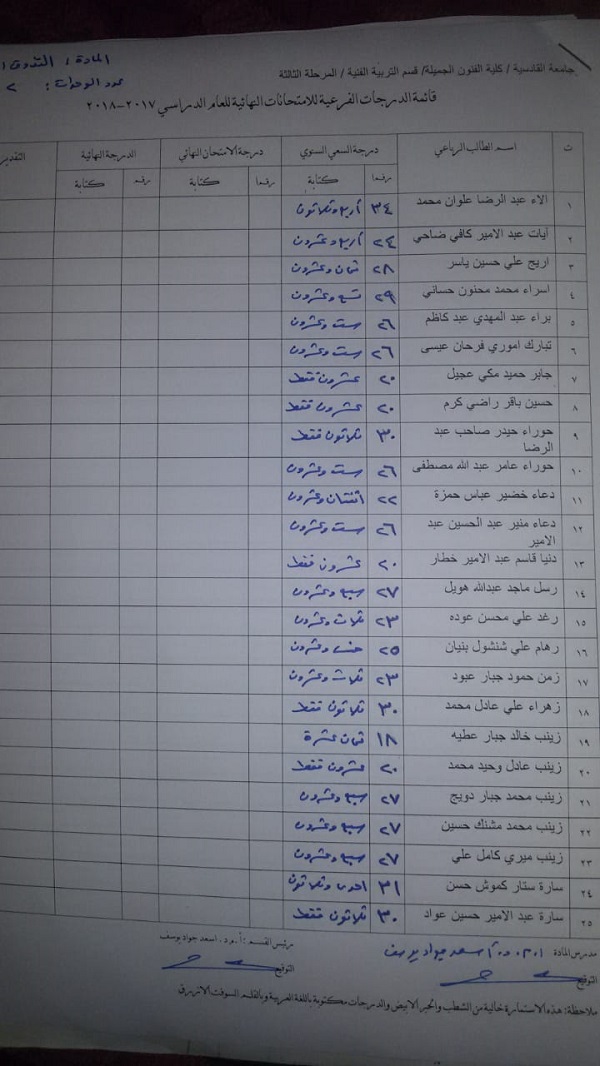 المادة / التذوق
عدد الوحدات : ٢
جامعة القادسية / كلية الفنون الجميلة / قسم التربية الفنية / المرحلة الثالثة
قائمة الدرجات الفرعية للامتحانات النهائية للعام الدراسي ٢٠١٧-٢٠١٨
ت اسم الطالب الرباعي درجة السعي السنوي درجة الامتحان النهائي الدرجة النهائية التقدير
رقما كتابة رقما كتابة رقما كتابة
١ الاء عبد الرضا علوان محمد ٣٤ أربع وثلاثون
٢ آيات عبد الامير كافي ضاحي ٢٤ أربع وعشرون
٣ اريج علي حسين ياسر ٢٨ ثمان وعشرون
٤ اسراء محمد محنون حساني ٢٩ تسع وعشرون
٥ براء عبد المهدي عبد كاظم ٢٦ ست وعشرون
٦ تبارك اموري فرحان عيسى ٢٦ ست وعشرون
٧ جابر حميد مكي عجيل ٢٠ عشرون فقط
٨ حسين باقر راضي كرم ٢٠ عشرون فقط
٩ حوراء حيدر صاحب عبد الرضا ٣٠ ثلاثون فقط
١٠ حوراء عامر عبد الله مصطفى ٢٦ ست وعشرون
١١ دعاء خضير عباس حمزة ٢٢ اثنتان وعشرون
١٢ دعاء منير عبد الحسين عبد الامير ٢٦ ست وعشرون
١٣ دنيا قاسم عبد الامير خطار ٢٠ عشرون فقط
١٤ رسل ماجد عبدالله هويل ٢٧ سبع وعشرون
١٥ رغد علي محسن عوده ٢٣ ثلاث وعشرون
١٦ رهام علي شنشول بنيان ٢٥ خمس وعشرون
١٧ زمن حمود جبار عبود ٢٣ ثلاث وعشرون
١٨ زهراء علي عادل محمد ٣٠ ثلاثون فقط
١٩ زينب خالد جبار عطيه ١٨ ثمان عشرة
٢٠ زينب عادل وحيد محمد ٢٠ عشرون فقط
٢١ زينب محمد جبار دويج ٢٧ سبع وعشرون
٢٢ زينب محمد مشنك حسين ٢٧ سبع وعشرون
٢٣ زينب ميري كامل علي ٢٧ سبع وعشرون
٢٤ سارة ستار كموش حسن ٣١ احدى وثلاثون
٢٥ سارة عبد الامير حسين عواد ٣٠ ثلاثون فقط
مدرس المادة أ.م.د. أسعد جواد يوسف رئيس القسم : أ.م.د. اسعد جواد يوسف
التوقيع التوقيع
ملاحظة : هذه الاستمارة خالية من الشطب والحبر الابيض والدرجات مكتوبة باللغة العربية وبالقلم السوفت الازرق